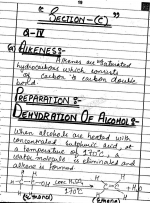 "SECTION-(C)"
Q-IV
(a) ALKENES:-
Alkenes are unsaturated
hydrocarbons which consists
of carbon to carbon double
bond.
PREPARATION:-
DEHYDRATION OF ALCOHOL:-
When alcohols are heated with
concentrated sulphuric acid at
a temperature of 170°C, a
water molecule is eliminated and
alkene is formed.
H H
Conc. H₂SO₄
170°C
(Ethanol) (Ethene)